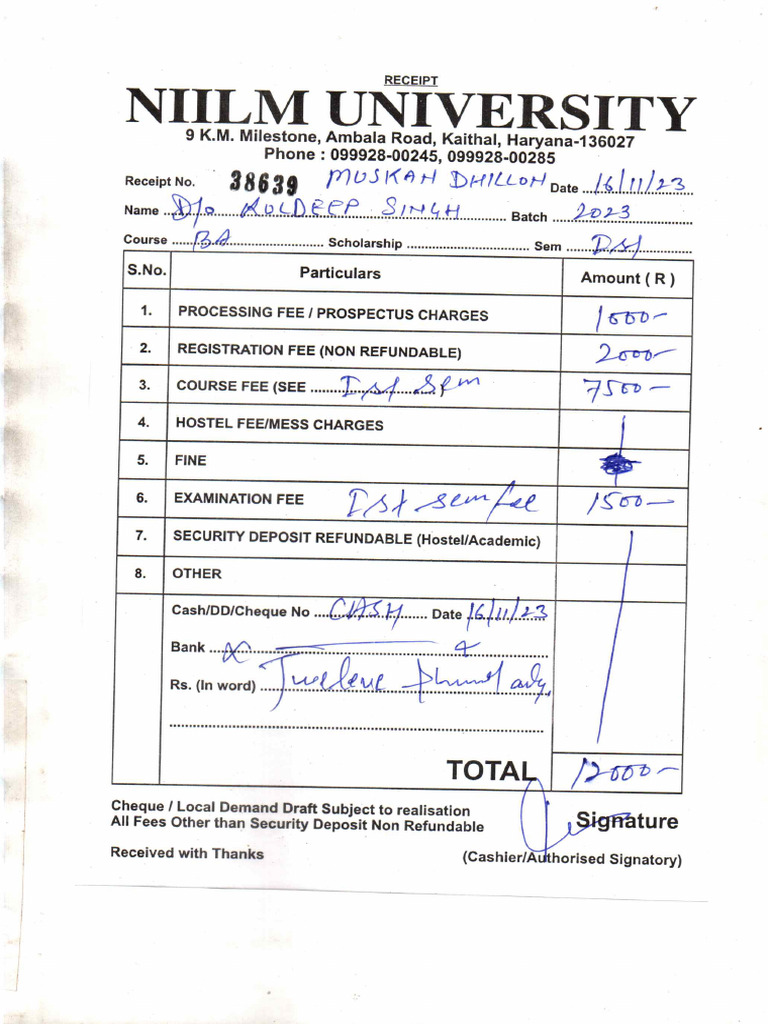 RECEIPT
NIILM UNIVERSITY
9 K.M. Milestone, Ambala Road, Kaithal, Haryana-136027
Phone : 099928-00245, 099928-00285
Receipt No. 38639 MUSKAN DHILLON Date 16/11/23
Name D/o KULDEEP SINGH Batch 2023
Course BA Scholarship Sem Ist
S.No. Particulars Amount ( R )
1. PROCESSING FEE / PROSPECTUS CHARGES 1000-
2. REGISTRATION FEE (NON REFUNDABLE) 2000-
3. COURSE FEE (SEE Ist Sem 7500-
4. HOSTEL FEE/MESS CHARGES
5. FINE
6. EXAMINATION FEE Ist sem fee 1500-
7. SECURITY DEPOSIT REFUNDABLE (Hostel/Academic)
8. OTHER
Cash/DD/Cheque No CASH Date 16/11/23
Bank
Rs. (In word) Twelve only
TOTAL 12000-
Cheque / Local Demand Draft Subject to realisation
All Fees Other than Security Deposit Non Refundable
Signature
Received with Thanks (Cashier/Authorised Signatory)